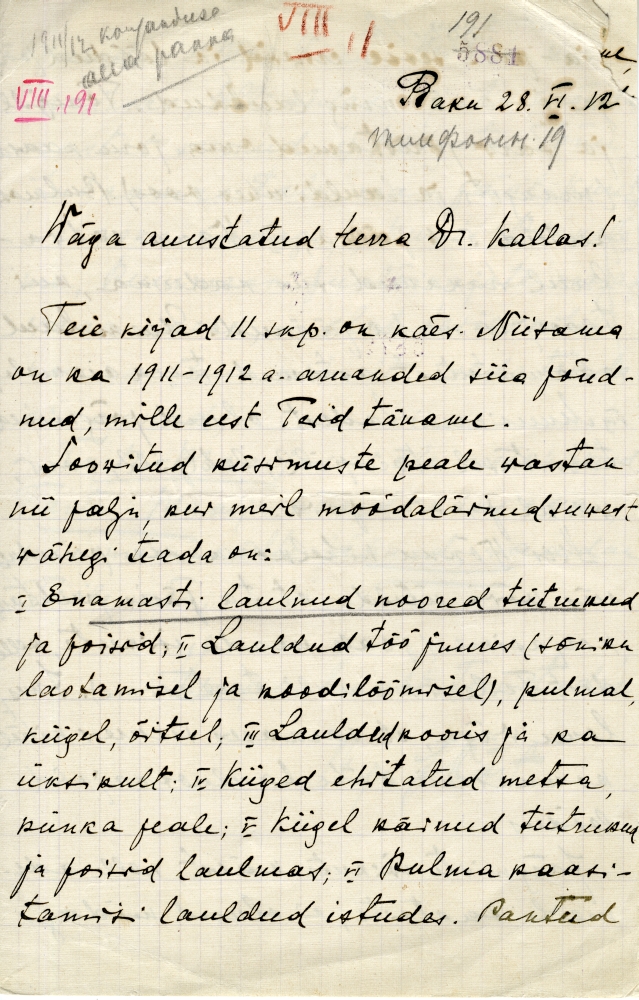 1911/12. korjanduse
alla panna
VIII 11
191
5881
VIII. 191
Baku 28. VI. 12
Wäga auustatud Herra Dr. Kallas!
Teie kirjad 11 skp. on käes. Niisama
on ka 1911-1912 a. aruanded siia jõud-
nud, mille eest Teid täname.
Soowitud küsimuste peale wastan
nii palju, kui meil möödaläinud suwest
wähegi teada on:
I Enamasti laulnud noored tütrukud
ja poisid; II Lauldud töö juures (sõniku
laotamisel ja koodilöömisel), pulmal,
kiigel, õitsel; III Lauldud kooris ja ka
üksikult; IV Kiiged ehitatud metsa,
künka peale; V Kiigel käinud tütrukud
ja poisid laulmas; VI Pulma kaasi-
tamisi lauldud istudes. Pantud